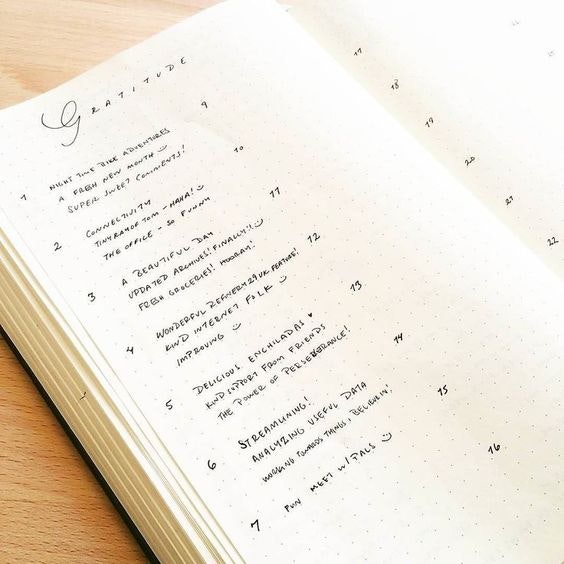 GRATITUDE
1
NIGHT TIME BIKE ADVENTURES
A FRESH NEW MONTH
SUPER SWEET COMMENTS!
2
CONNECTIVITY
TINY RAY OF TOM - HAHA!
THE OFFICE - SO FUNNY
3
A BEAUTIFUL DAY
UPDATED ARCHIVES! FINALLY!
FRESH GROCERIES! HOORAY!
4
WONDERFUL REFINERY29 UK FEATURE!
KIND INTERNET FOLK
IMPROVING
5
DELICIOUS ENCHILADAS ♥
KIND SUPPORT FROM FRIENDS
THE POWER OF PERSERVERANCE!
6
STREAMLINING!
ANALYZING USEFUL DATA
WORKING TOWARDS THINGS I BELIEVE IN!
7
FUN MEET W/ PALS
9
10
11
12
13
14
15
16
17
18
19
20
21
22